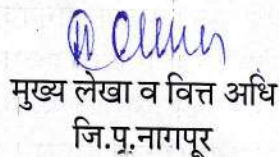 मुख्य लेखा व वित्त अधि
जि.प.नागपूर